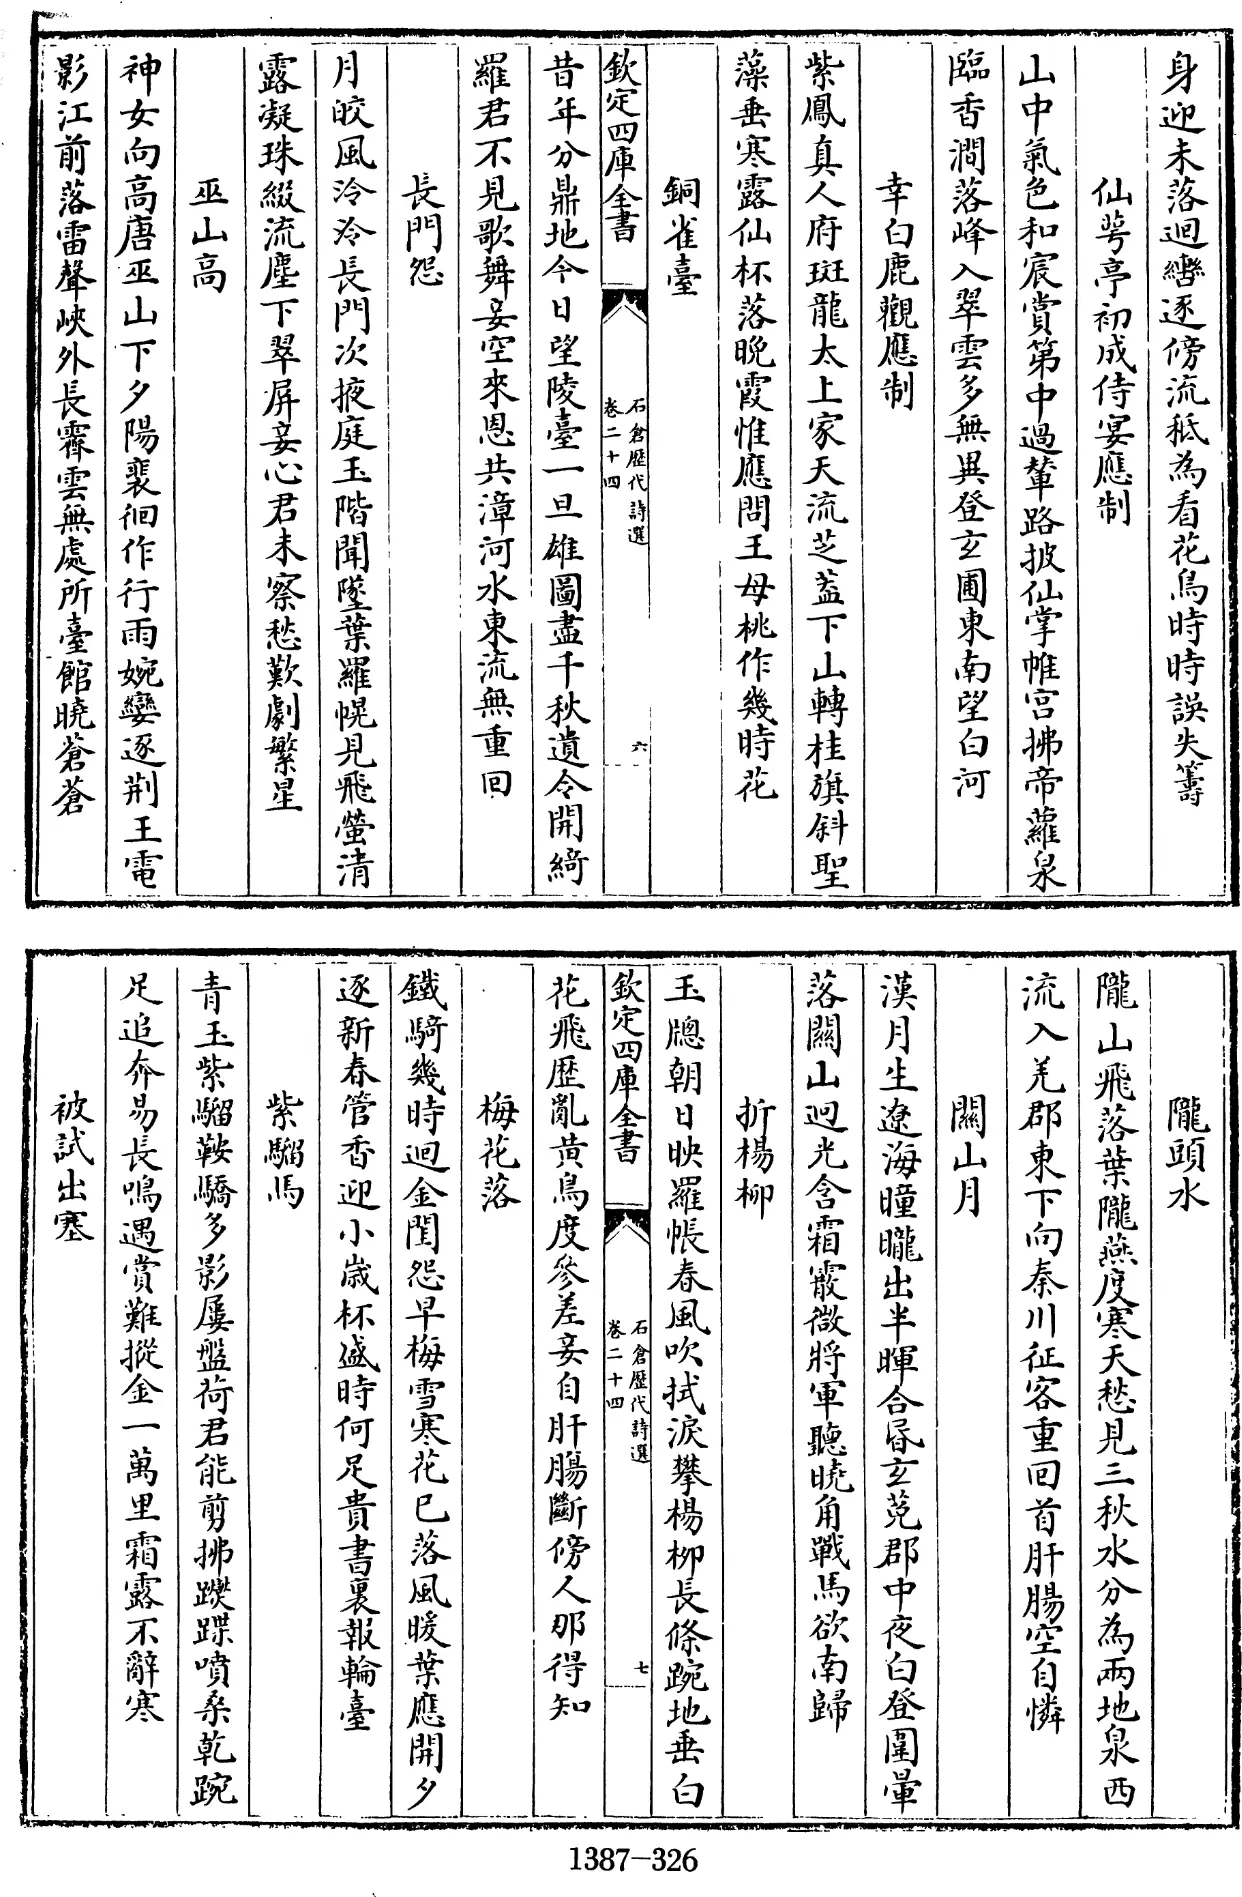 身迎未落迴轡逐傍流秪為看花鳥時時誤失籌
仙萼亭初成侍宴應制
山中氣色和宸賞第中過輦路披仙掌帷宮拂帝蘿泉
臨香澗落峰入翠雲多無異登玄圃東南望白河
幸白鹿觀應制
紫鳳真人府斑龍太上家天流芝蓋下山轉桂旗斜聖
藻垂寒露仙杯落晚霞惟應問王母桃作幾時花
銅雀臺
欽定四庫全書
石倉歷代詩選
卷二十四
六
昔年分鼎地今日望陵臺一旦雄圖盡千秋遺令開綺
羅君不見歌舞妾空來恩共漳河水東流無重回
長門怨
月皎風泠泠長門次掖庭玉階聞墜葉羅幌見飛螢清
露凝珠綴流塵下翠屏妾心君未察愁歎劇繁星
巫山高
神女向高唐巫山下夕陽裵徊作行雨婉孌逐荆王電
影江前落雷聲峽外長霽雲無處所臺館曉蒼蒼
隴頭水
隴山飛落葉隴燕度寒天愁見三秋水分為兩地泉西
流入羌郡東下向秦川征客重回首肝腸空自憐
關山月
漢月生遼海曈曨出半暉合昬玄菟郡中夜白登圍暈
落關山迥光含霜霰微將軍聽曉角戰馬欲南歸
折楊柳
玉牎朝日映羅帳春風吹拭淚攀楊柳長條踠地垂白
欽定四庫全書
石倉歷代詩選
卷二十四
七
花飛歴亂黄鳥度參差妾自肝腸斷傍人那得知
梅花落
鐵騎幾時迴金閨怨早梅雪寒花已落風暖葉應開夕
逐新春管香迎小歳杯盛時何足貴書裏報輪臺
紫騮馬
青玉紫騮鞍驕多影屢盤荷君能剪拂躞蹀噴桑乾踠
足追奔易長鳴遇賞難摐金一萬里霜露不辭寒
被試出塞
1387-326